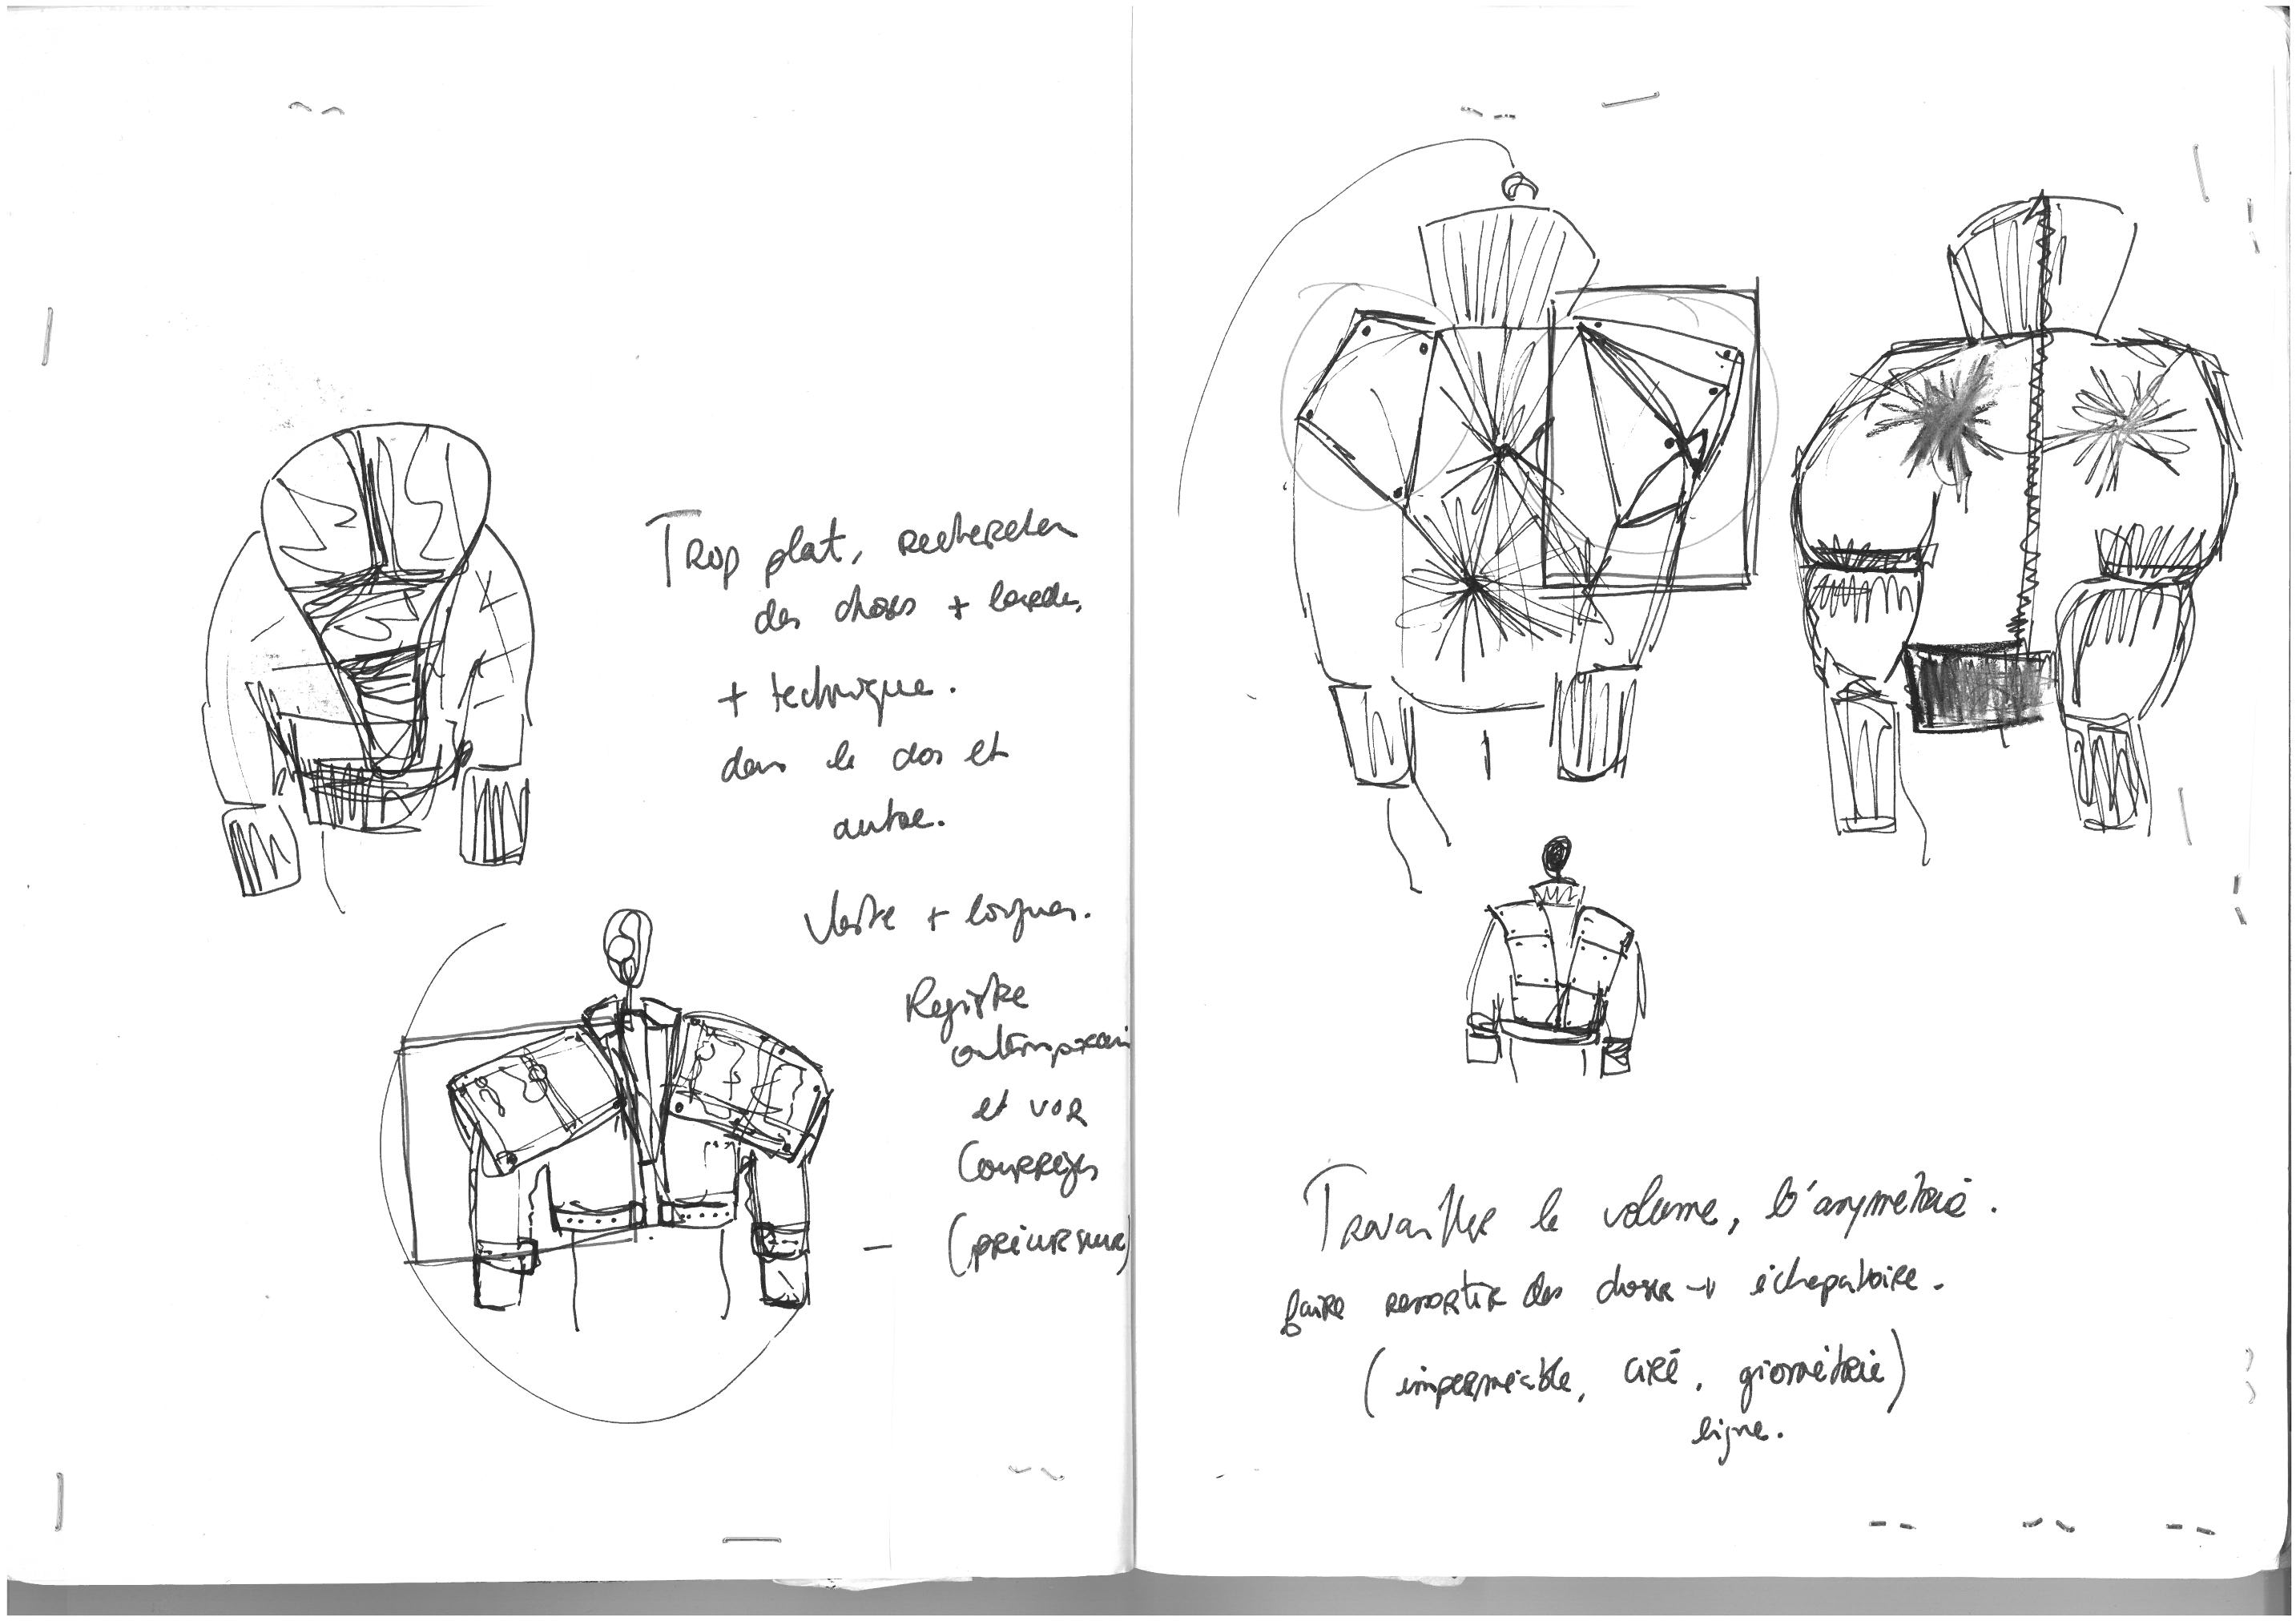 Trop plat, rechercher
des choses + lourdes,
+ technique.
dans le dos et
autre.
Veste + longues.
Registre
contemporain
et voir
Courrèges
(précurseur)
Travailler le volume, l'asymétrie.
faire ressortir des choses → échapatoire.
(imperméable, ciré, géométrie)
ligne.